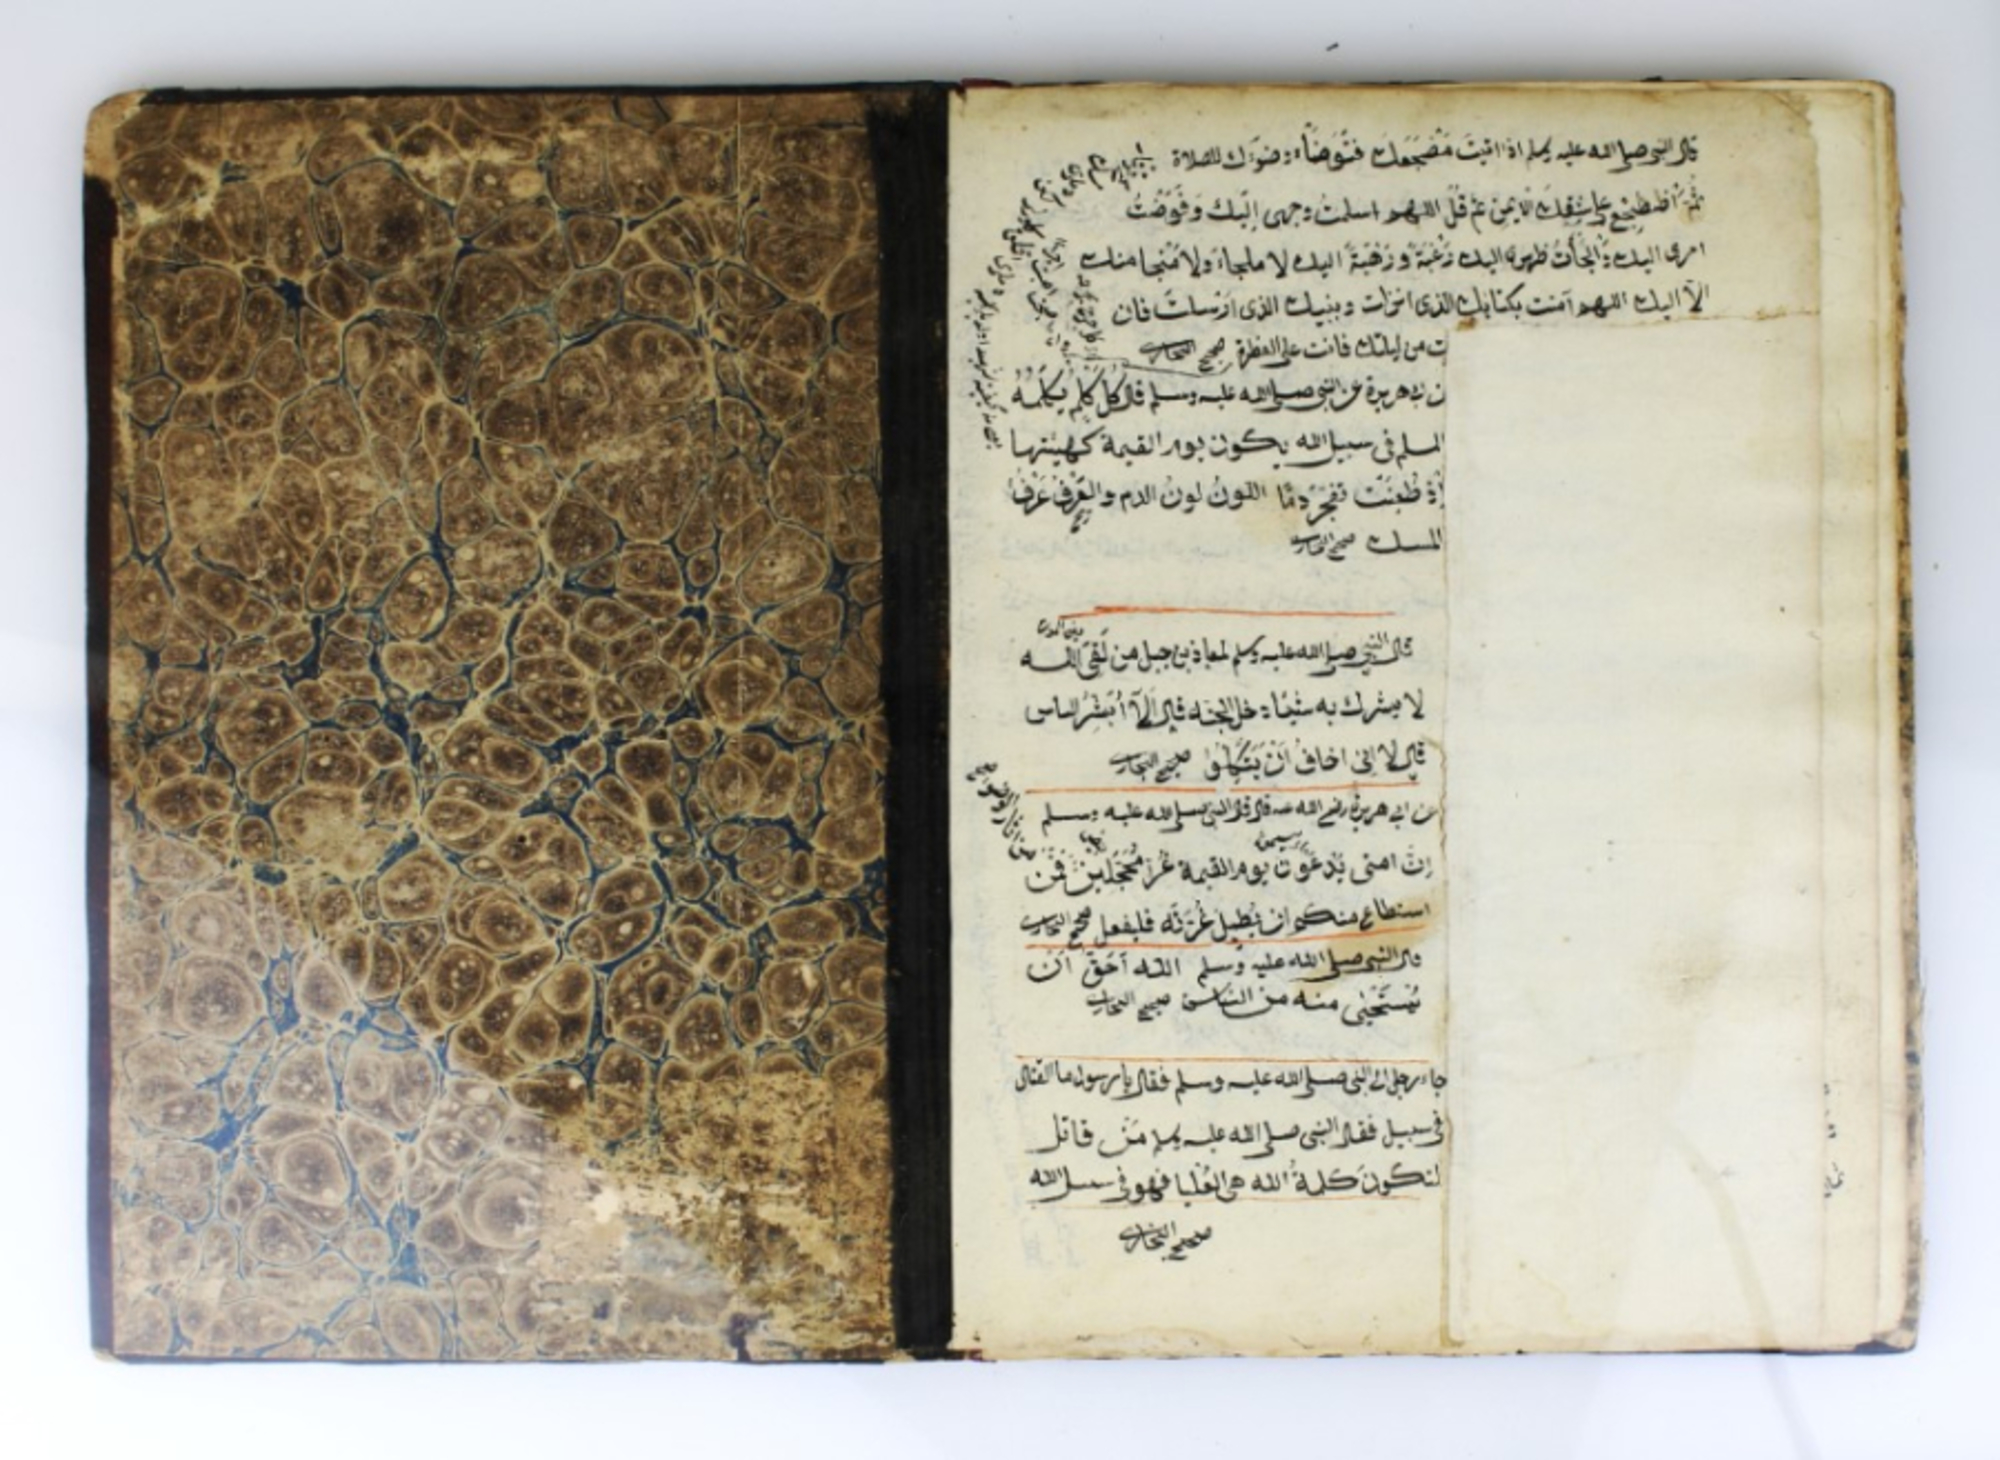 قال النبي صلى الله عليه وسلم اذا اتيت مَضْجَعَك فتَوَضَّأ وضوءك للصلاة
ثمّ اضطجِع على شِقِّكَ الايمن ثم قُل اللهم اسلمت وجهى اِليك وَفَوَّضْتُ
امرى اليك وَاَلْجَأْتُ ظهرى اليك رَغْبَةً وَرَهْبَةً اليك لا ملجاء ولا مَنْجا منك
الّا اليك اللهم آمنت بكتابك الذى انزلت وبنبيك الذى ارسلت فان
ت من ليلتك فانت على الفطرة صحيح البخارى
ن ابى هريرة عن النبى صلى الله عليه وسلم قال كُلُّ كَلْمٍ يُكْلَمُهُ
المسلم فى سبيل الله يكون يوم القيمة كهيئتها
اِذْ طُعِنَتْ تَفَجَّرُ دمًا اللونُ لونُ الدم والعَرْفُ عَرْفُ
المسك صحيح البخارى
قال النبى صلى الله عليه وسلم لمعاذ بن جبل من لَقِىَ الله
لا يشرك به شيئًا دخل الجنة قال اَلَا اُبَشِّرُ الناس
قال لا انى اخافُ اَنْ يَتَّكِلُوا صحيح البخارى
عن ابى هريرة رضى الله عنه قال قال النبى صلى الله عليه وسلم
اِنّ امتى يُدعَوْن يوم القيمة غُرًّا مُحَجَّلين فَمَن
استطاع منكم ان يُطيل غُرَّتَه فليفعل صحيح البخارى
قال النبى صلى الله عليه وسلم الله اَحَقّ اَنْ
يُسْتَحْيٰى منه من الناس صحيح البخارى
جاء رجل الى النبى صلى الله عليه وسلم فقال يا رسول ما القتال
فى سبيل فقال النبى صلى الله عليه وسلم مَنْ قاتل
لتكونَ كلمةُ الله هى العُليا فهو فى سبيل الله
صحيح البخارى